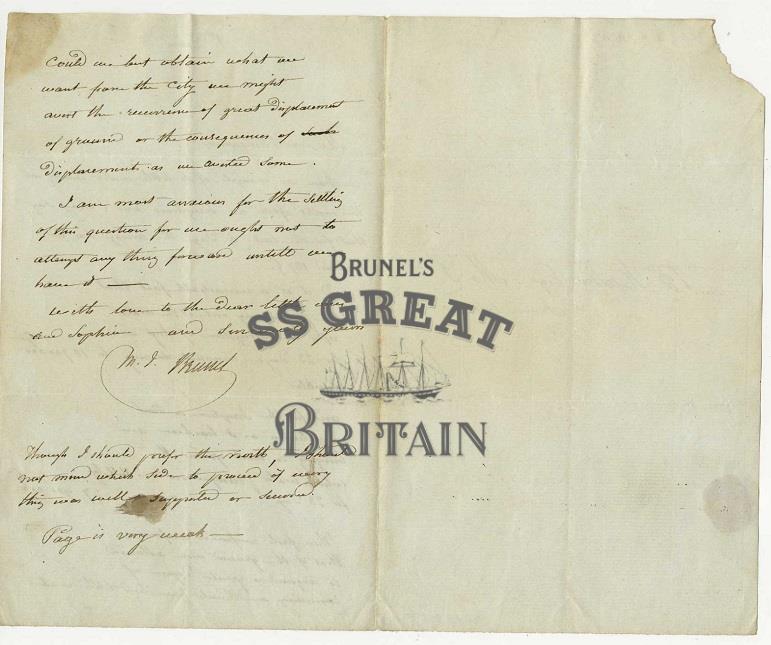 Could we but obtain what we
want from the City we might
avert the recurrence of great displacement
of ground or the consequences of such
displacements as we averted some.
I am most anxious for the settling
of this question for we ought not to
attempt any thing forward untill we
have it —
With love to the dear little ones
and Sophia and sincerely yours
M. I. Brunel
Though I should prefer the north, I should
not mind which side to proceed if every
thing was well supported or secured.
Page is very weak —
BRUNEL'S
SS GREAT
BRITAIN